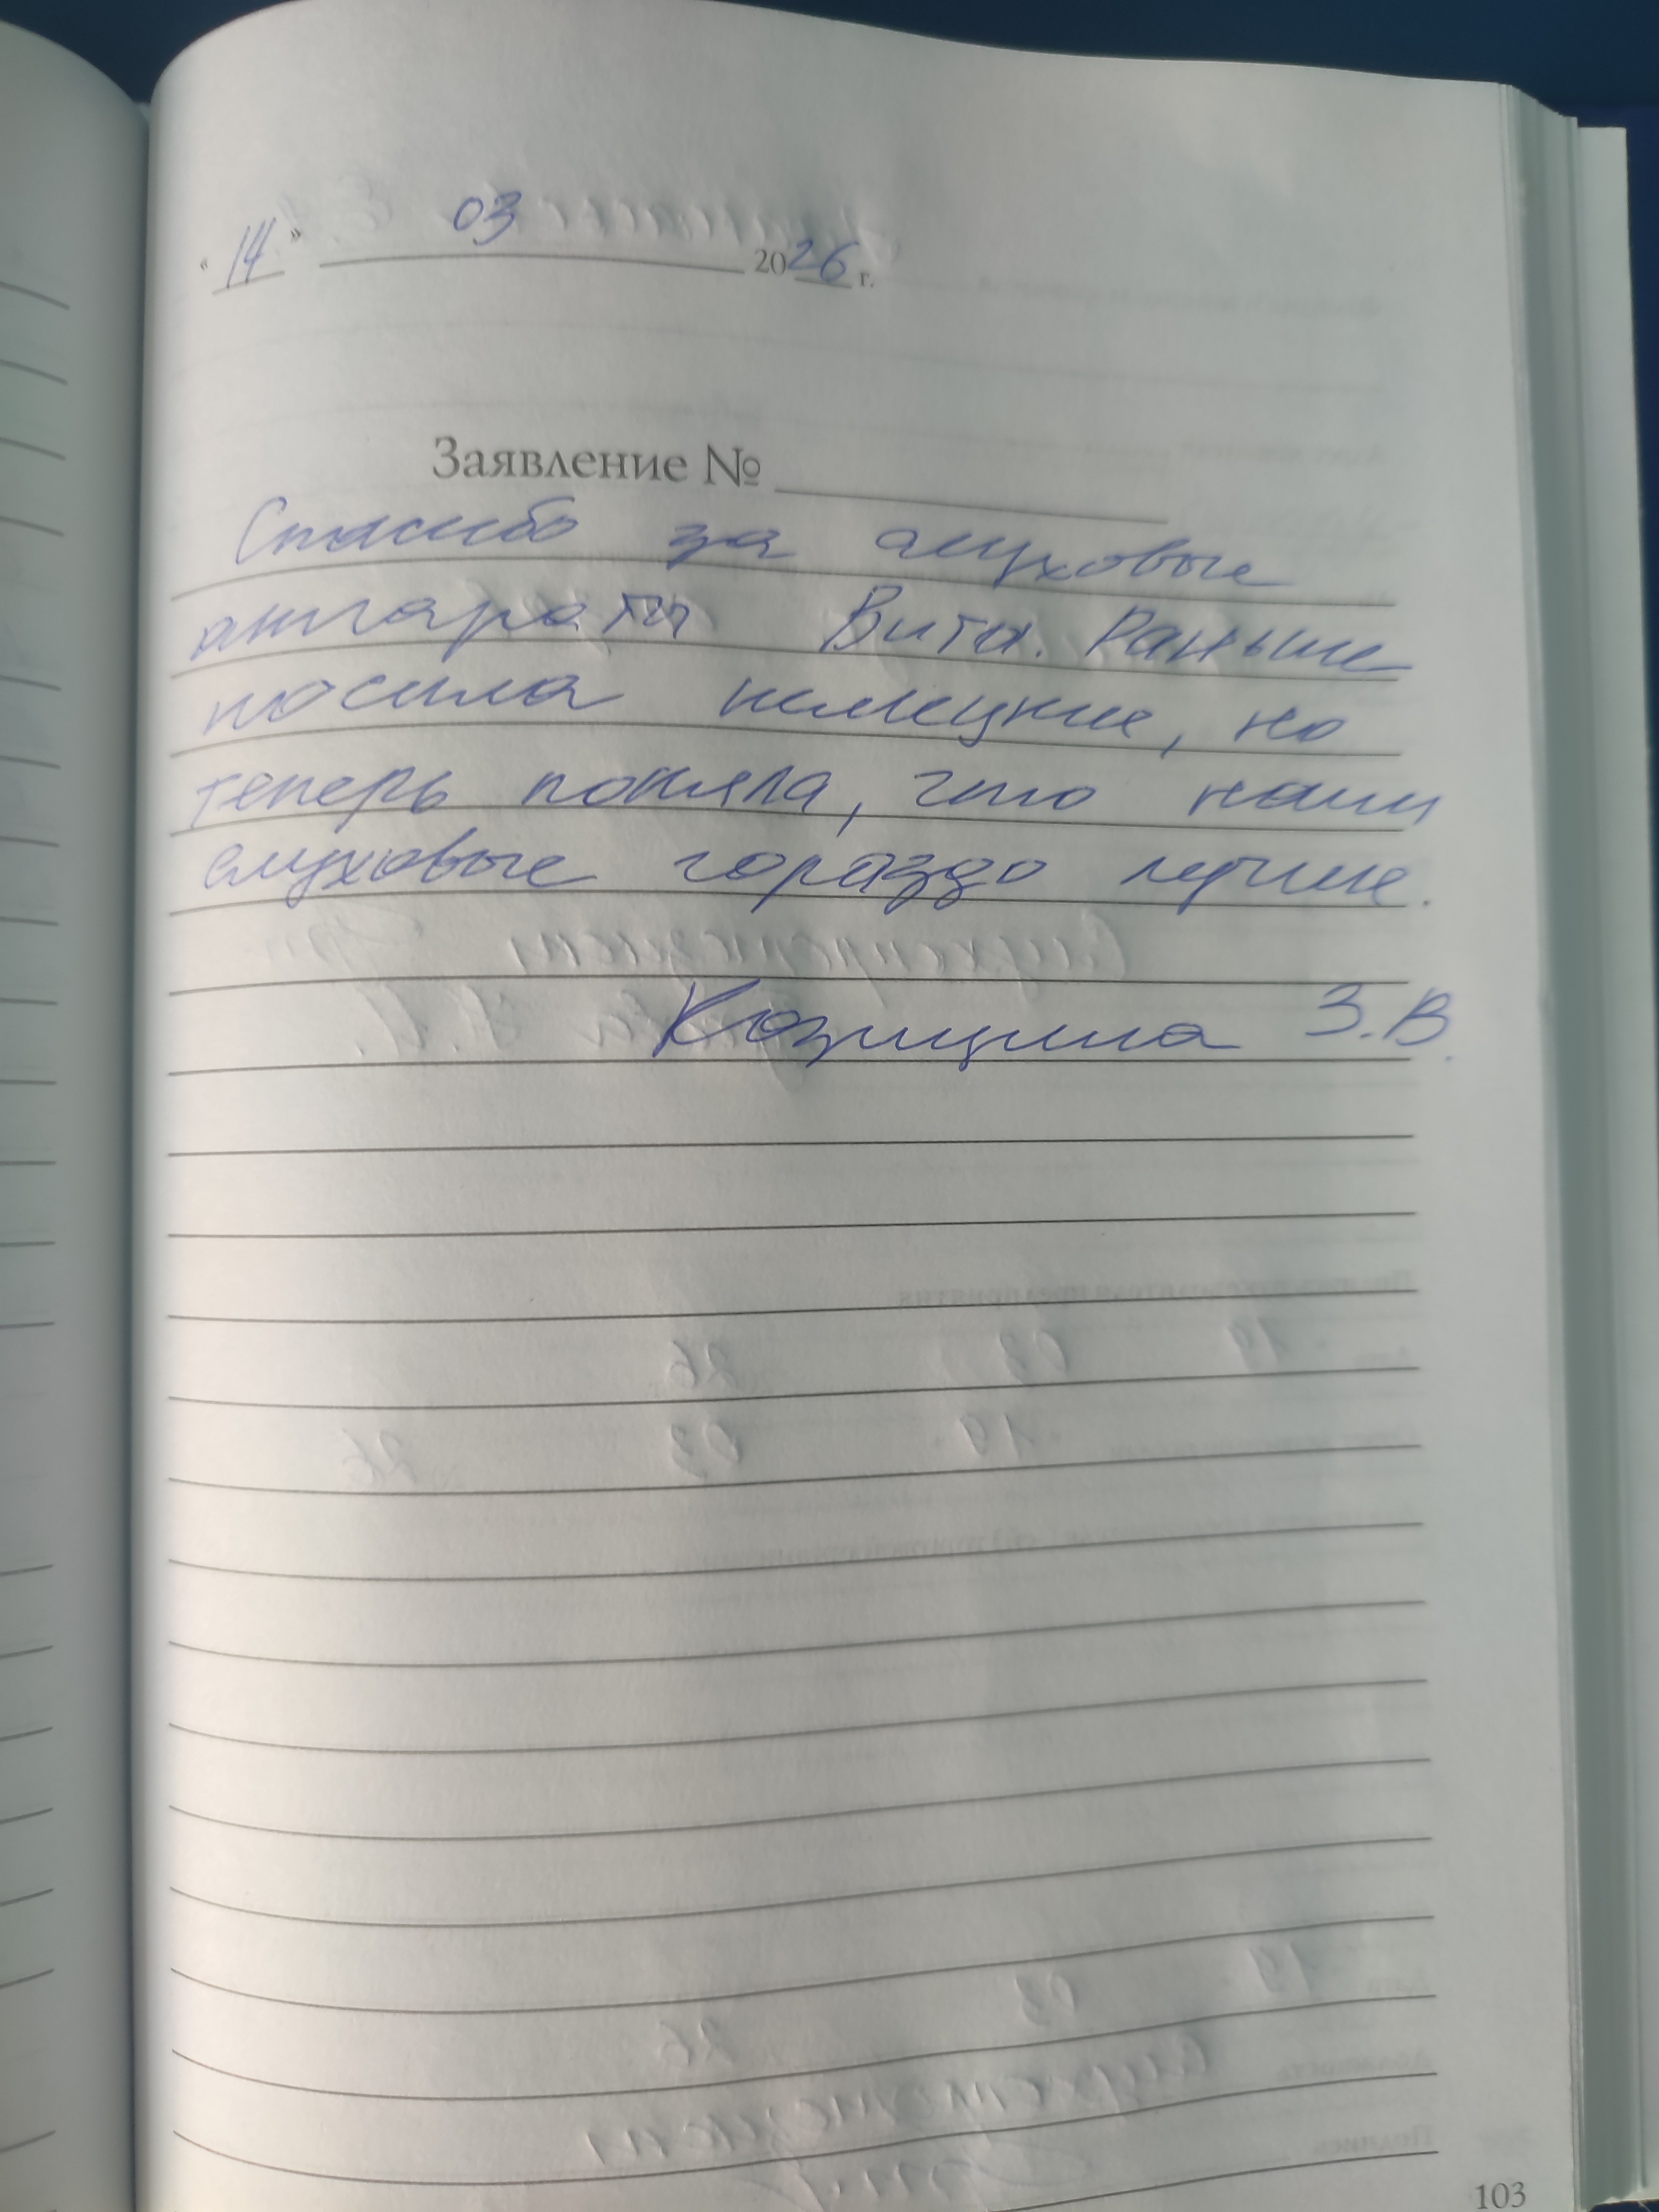 « 14 » 03 2026 г.
Заявление №
Спасибо за слуховые
аппараты Вита. Раньше
носила немецкие, но
теперь поняла, что наши
слуховые гораздо лучше.
З.В.
103